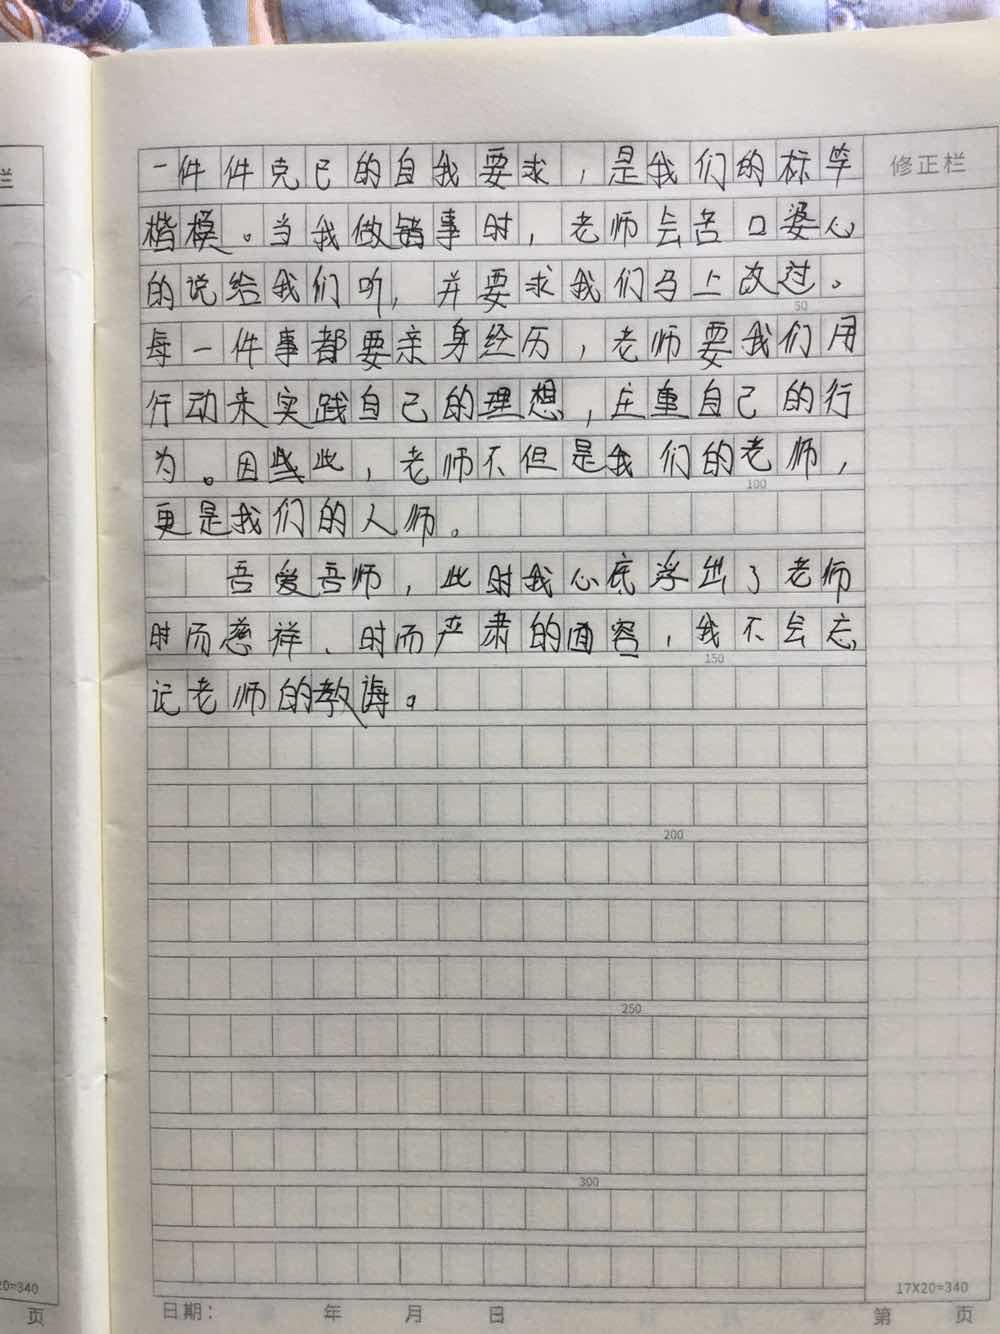 一件件克己的自我要求，是我们的标竿
楷模。当我做错事时，老师会苦口婆心
的说给我们听，并要求我们马上改过。
50
每一件事都要亲身经历，老师要我们用
行动来实践自己的理想，庄重自己的行
为。因此，老师不但是我们的老师，
100
更是我们的人师。
吾爱吾师，此时我心底浮出了老师
时而慈祥、时而严肃的面容，我不会忘
150
记老师的教诲。
200
250
300
修正栏
17X20=340
日期： 年 月 日
第 页
栏
20=340
页